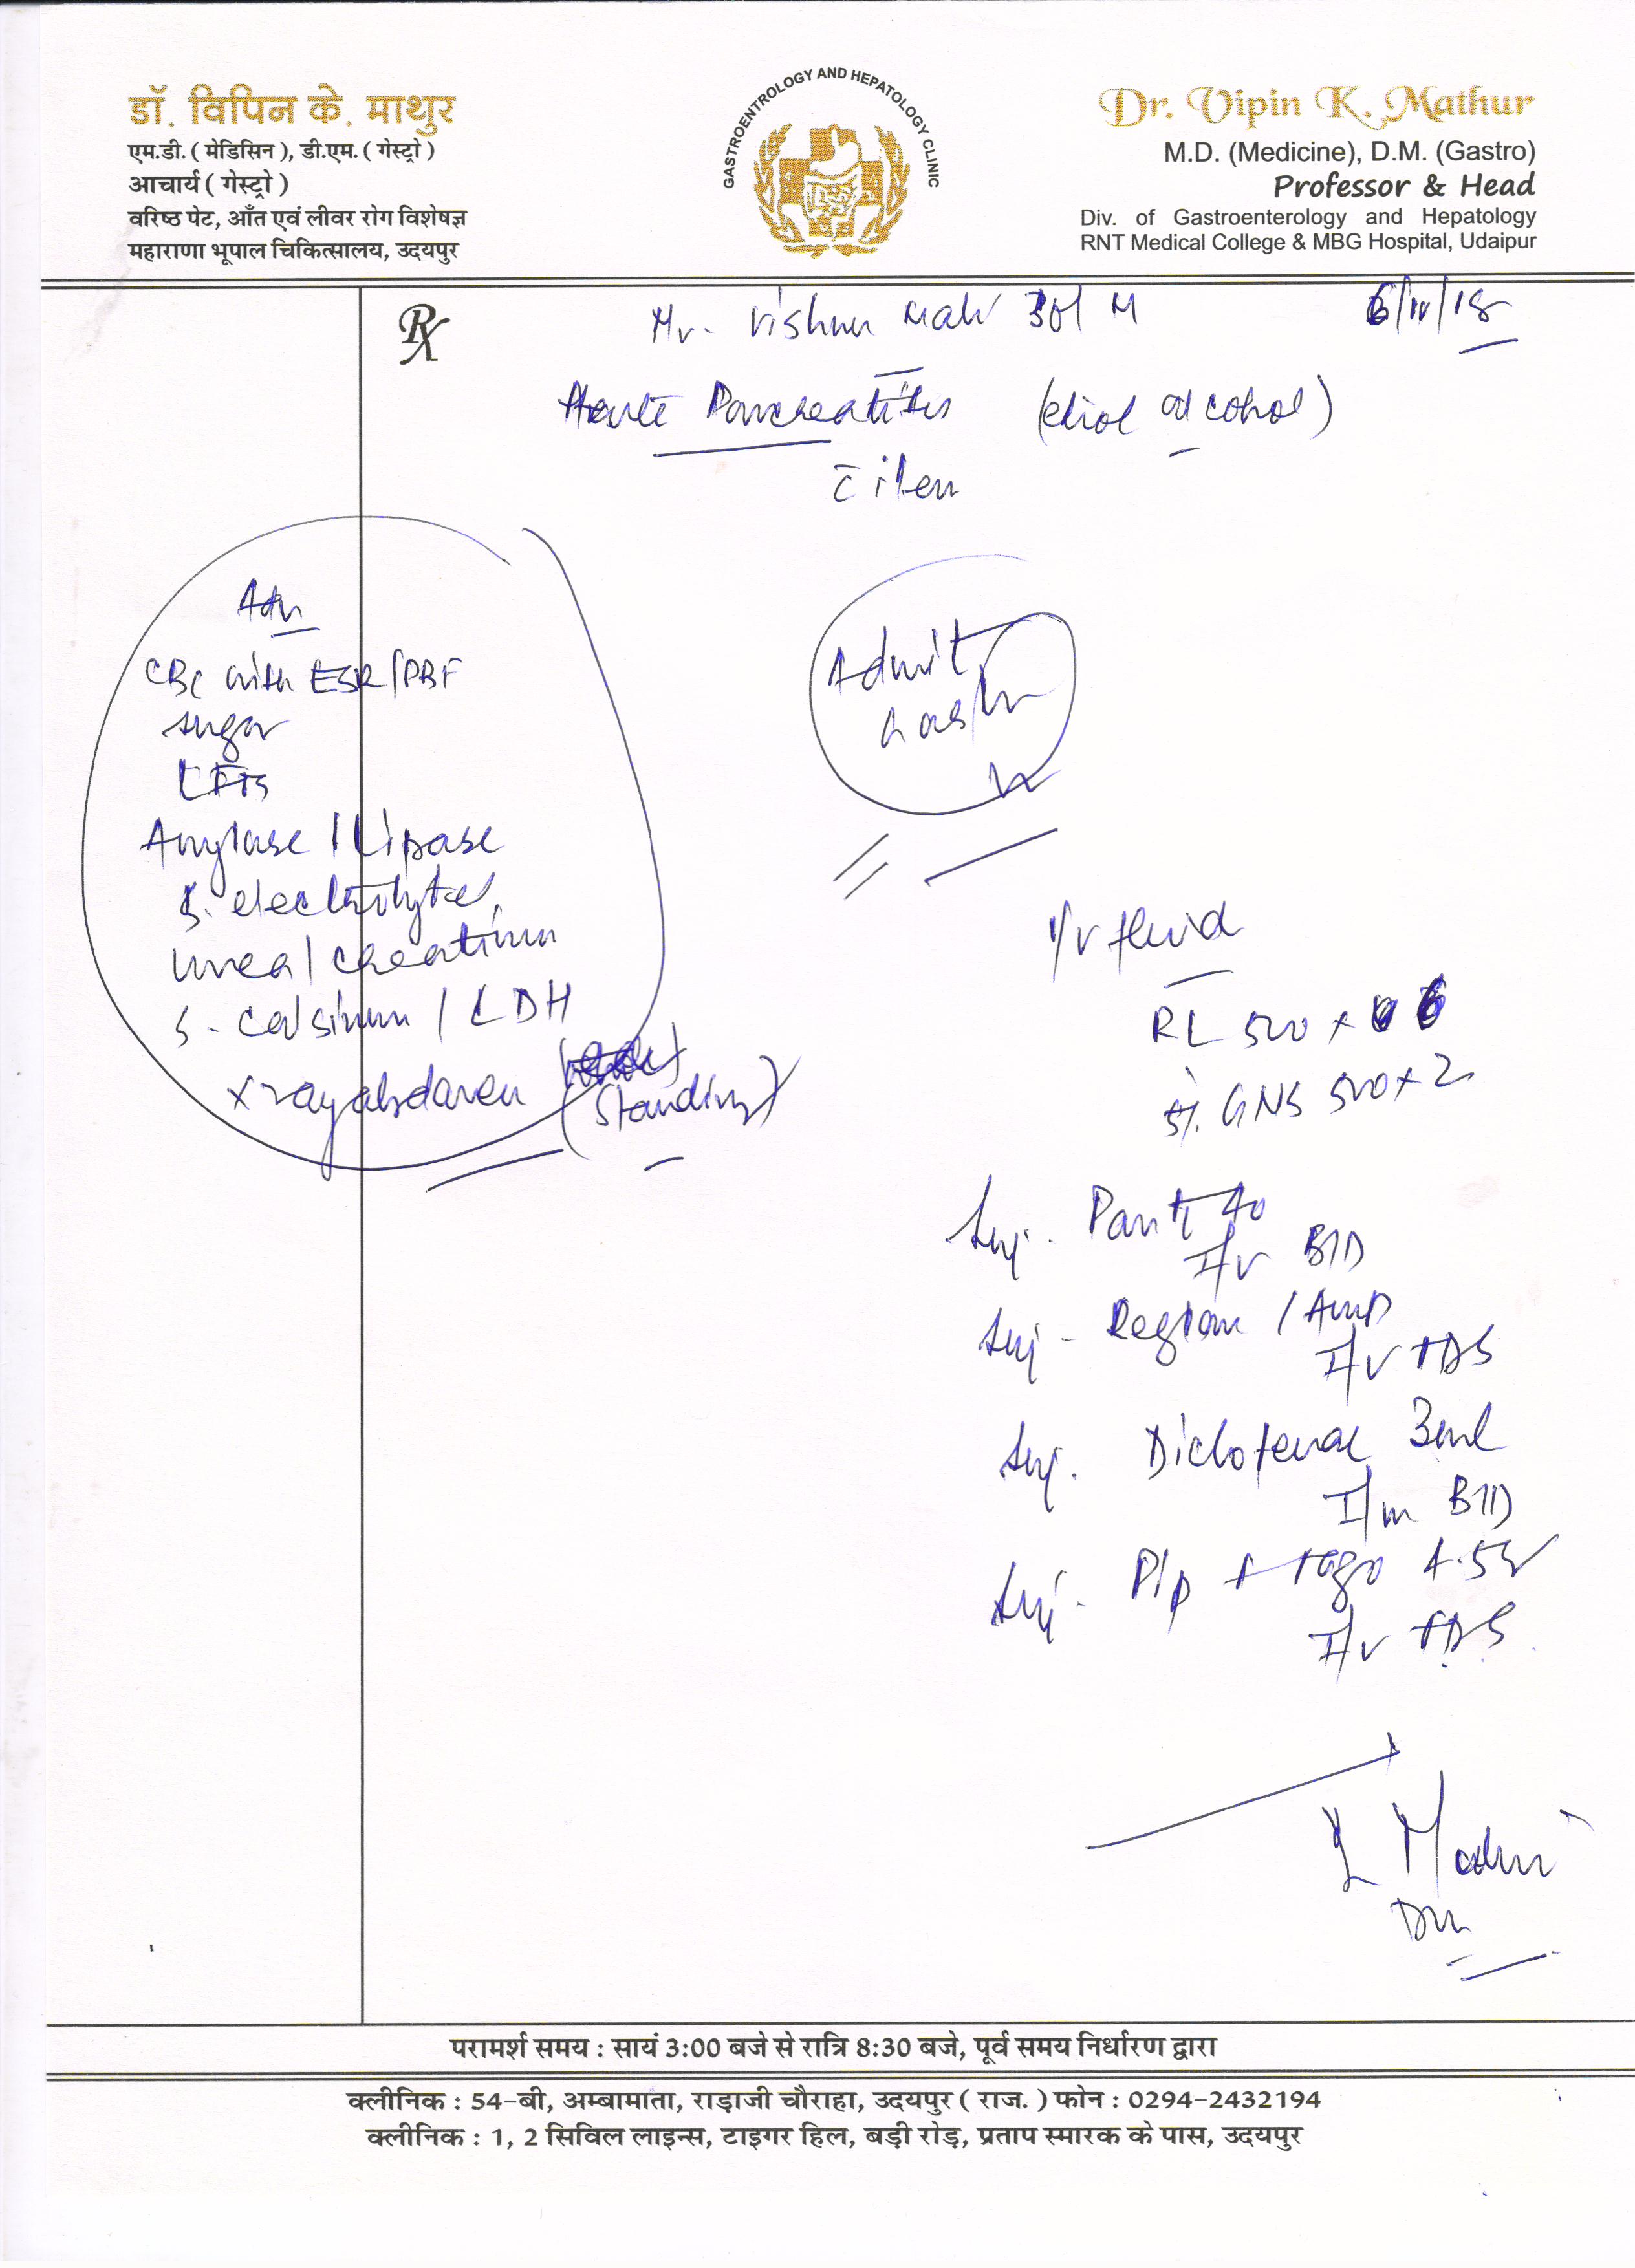 डॉ. विपिन के. माथुर
एम.डी. ( मेडिसिन ), डी.एम. ( गेस्ट्रो )
आचार्य ( गेस्ट्रो )
वरिष्ठ पेट, आँत एवं लीवर रोग विशेषज्ञ
महाराणा भूपाल चिकित्सालय, उदयपुर
GASTROENTROLOGY AND HEPATOLOGY CLINIC
Dr. Vipin K. Mathur
M.D. (Medicine), D.M. (Gastro)
Professor & Head
Div. of Gastroenterology and Hepatology
RNT Medical College & MBG Hospital, Udaipur
Rx
Mr. Vishnu 30/ M
Acute Pancreatitis (ethol alcohol)
Adv
CBC with ESR/PBF
sugar
LFTs
Amylase / Lipase
S. electrolytes
urea / creatinin
S. calsium / LDH
X ray abdomen
(Standing)
Admit
Gastro
I/V fluid
RL 500 x 6
5%. GNS 500 x 2
Inj. Pant 40
I/V BID
Inj - Reglan 1 Amp
I/V TDS
Inj. Diclofenac 3ml
I/m BID
Inj. Pip + tazo 4.5
I/V TDS
परामर्श समय : सायं 3:00 बजे से रात्रि 8:30 बजे, पूर्व समय निर्धारण द्वारा
क्लीनिक : 54-बी, अम्बामाता, राड़ाजी चौराहा, उदयपुर ( राज. ) फोन : 0294-2432194
क्लीनिक : 1, 2 सिविल लाइन्स, टाइगर हिल, बड़ी रोड़, प्रताप स्मारक के पास, उदयपुर